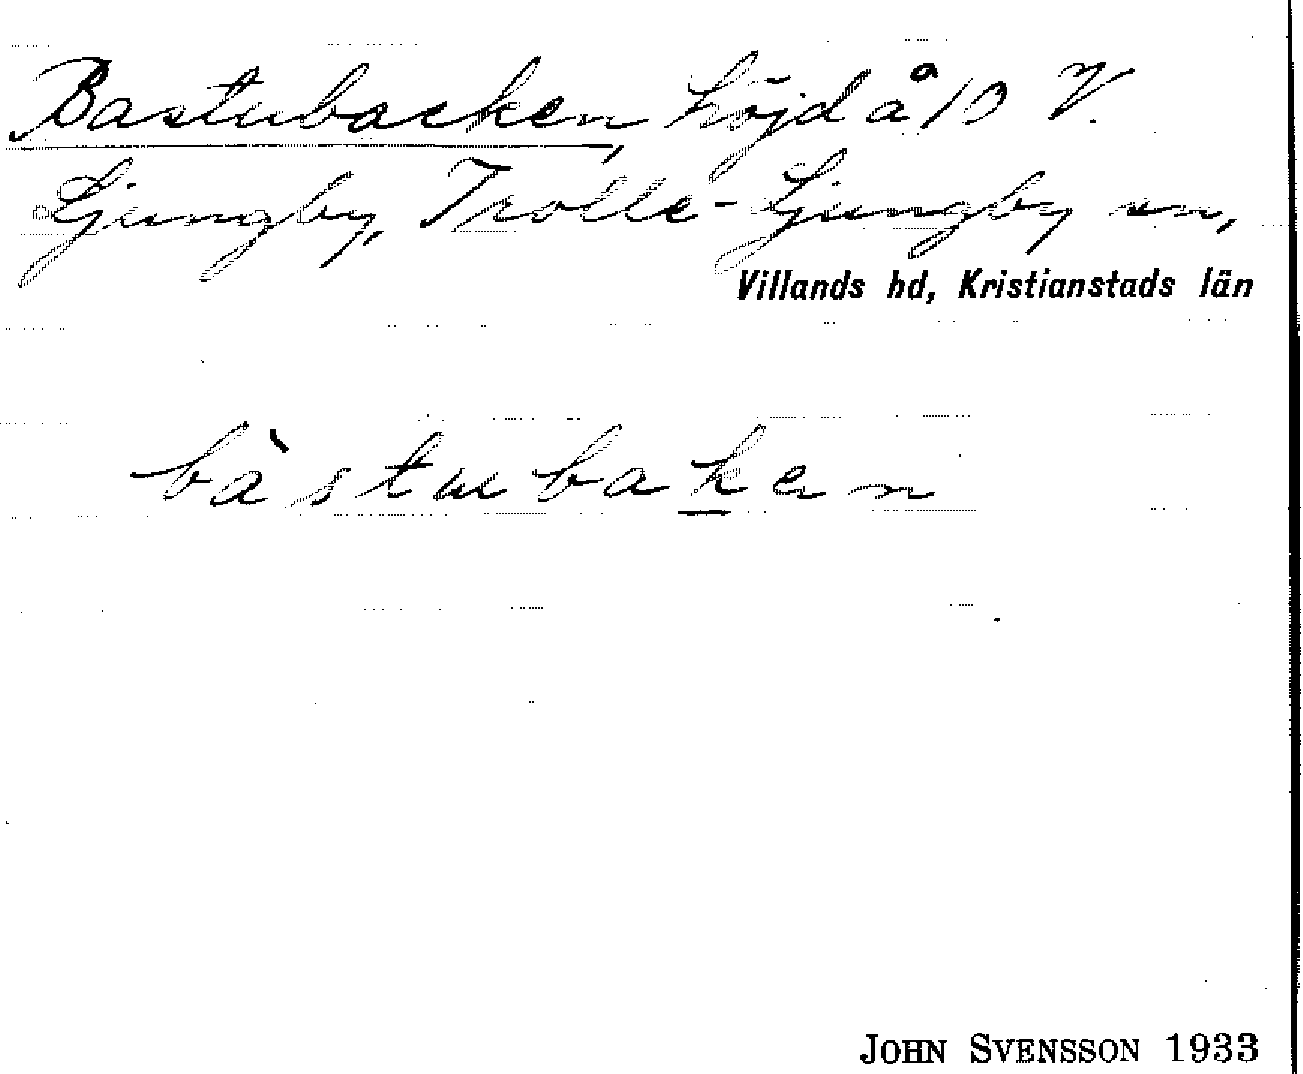 Bastubacken, höjd å 10 V.
Ljungby, Trolle-Ljungby sn,
Villands hd, Kristianstads län
bàstubaken
JOHN SVENSSON 1933